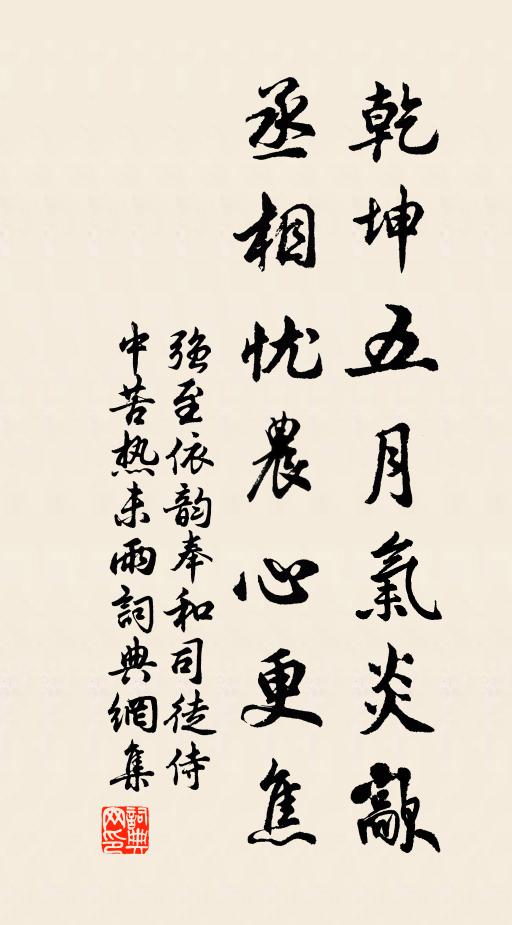 乾坤五月氣炎歊
丞相忧農心更焦
強至依韵奉和司徒侍
中苦热未雨詞典網集
詞典网印